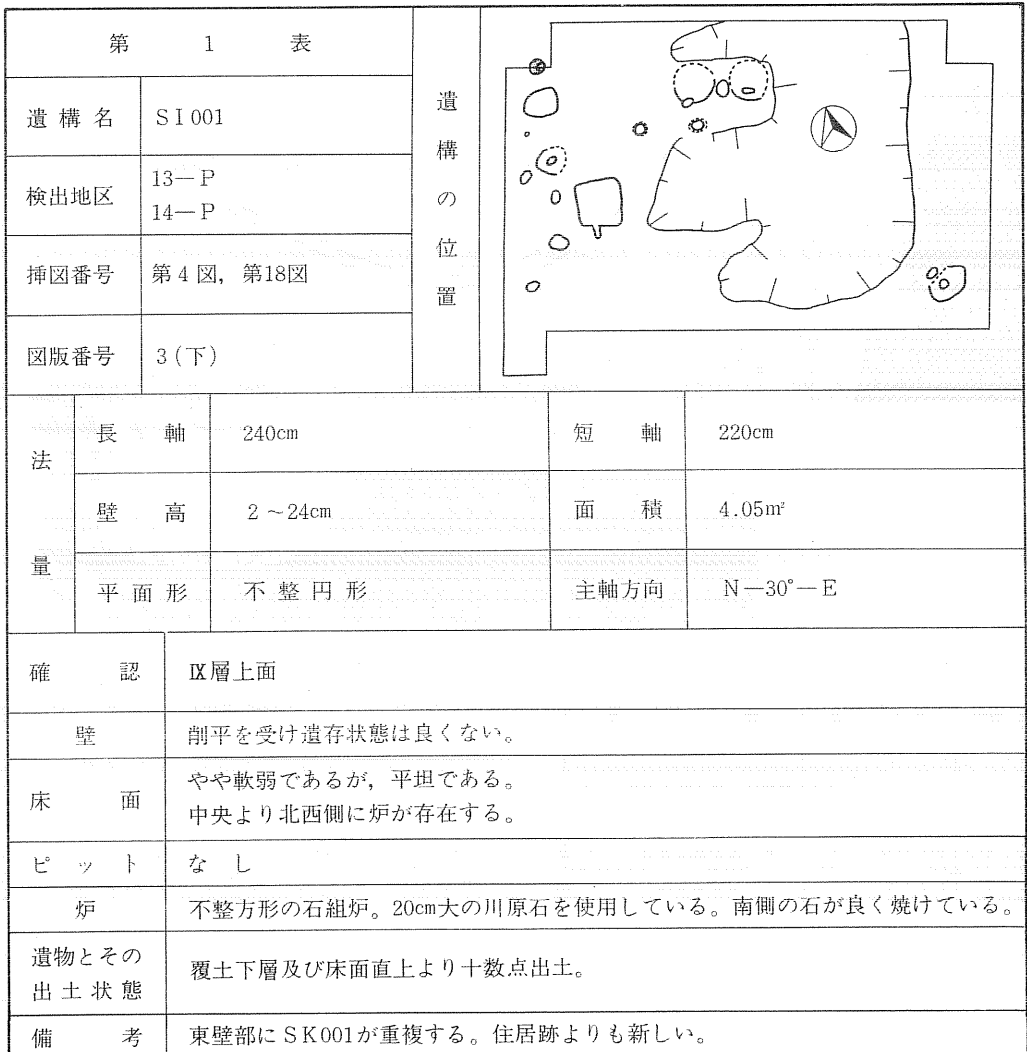 第 1 表
遺構名 SI001
検出地区 13―P
14―P
挿図番号 第4図，第18図
図版番号 3(下)
遺構の位置
法量
長軸 240cm 短軸 220cm
壁高 2～24cm 面積 4.05㎡
平面形 不整円形 主軸方向 N―30°―E
確認 Ⅸ層上面
壁 削平を受け遺存状態は良くない。
床面 やや軟弱であるが，平坦である。
中央より北西側に炉が存在する。
ピット なし
炉 不整方形の石組炉。20cm大の川原石を使用している。南側の石が良く焼けている。
遺物とその
出土状態 覆土下層及び床面直上より十数点出土。
備考 東壁部にSK001が重複する。住居跡よりも新しい。